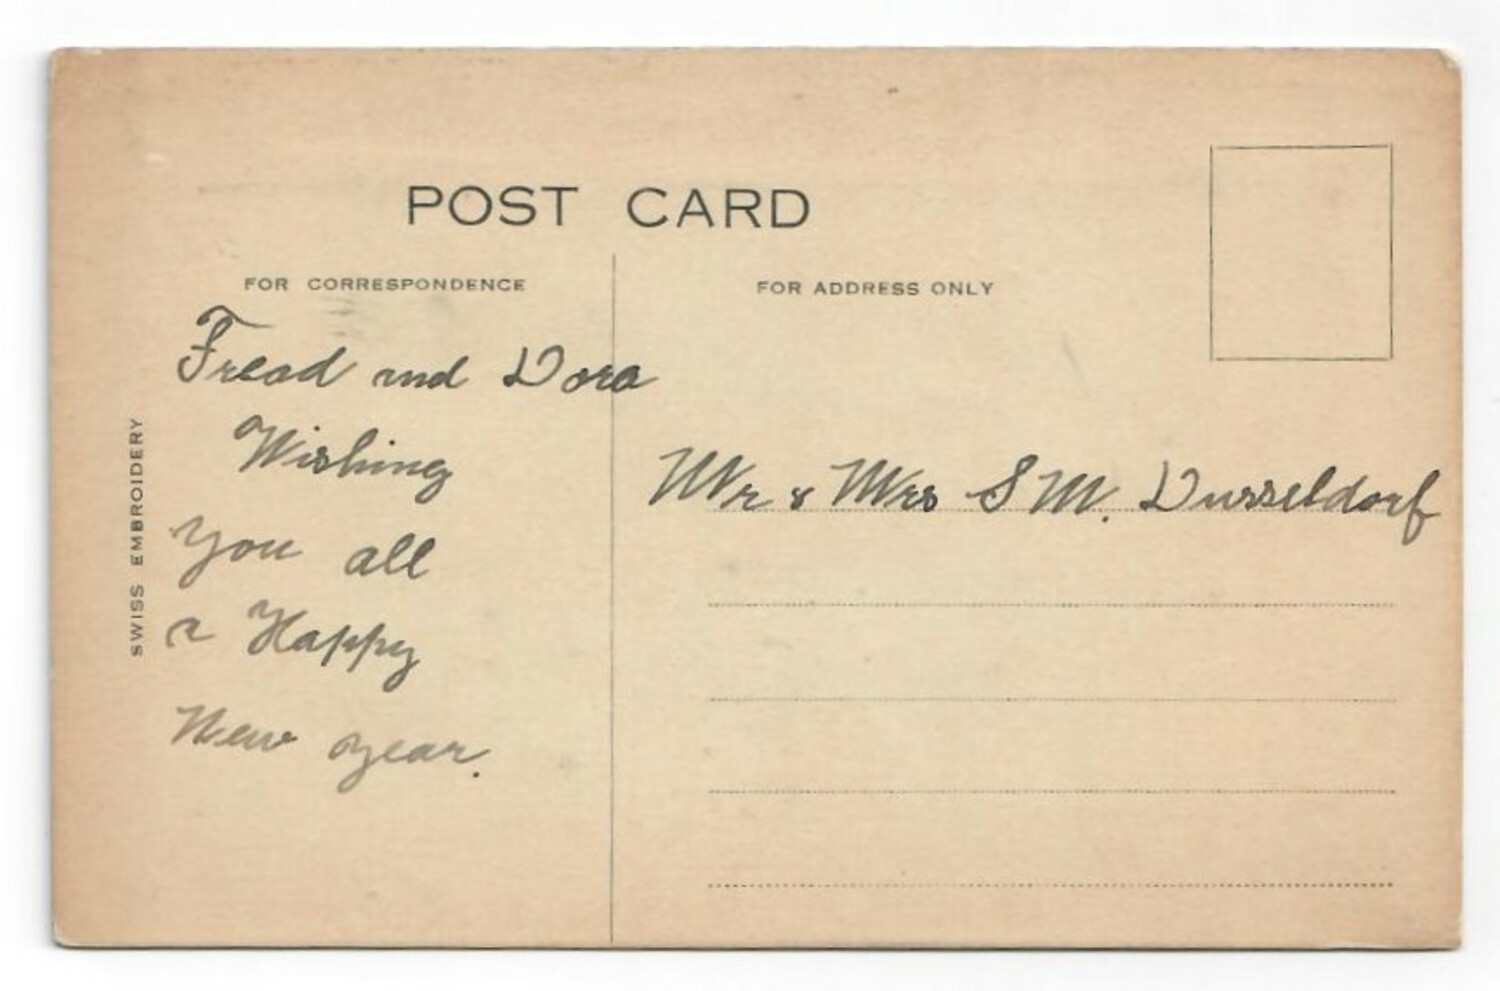 POST CARD
FOR CORRESPONDENCE
FOR ADDRESS ONLY
SWISS EMBROIDERY
Fread and Dora
Wishing
You all
a Happy
New year.
Mr & Mrs S M. Dusseldorf